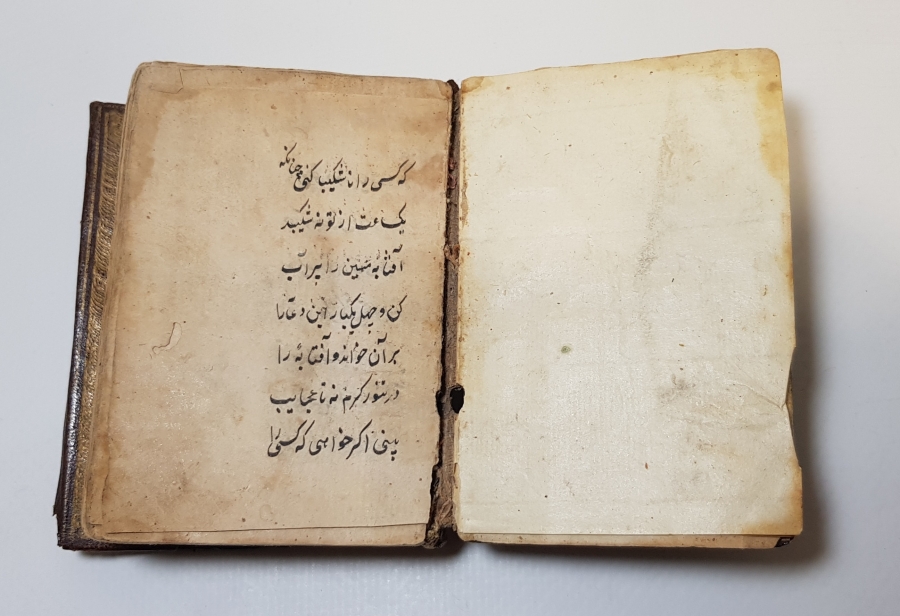 که کسی را ناشکیبا کنی چنانکه
یکساعت از تو نه شکیبد
آفتابهٔ مسین را پر آب
کن و چهل یکبار این دعا را
بر آن خواند و آفتابه را
در تنور گرم نه تا عجایب
بینی اگر خواهی که کسی را